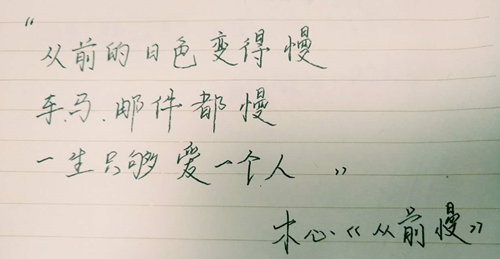 “
从前的日色变得慢
车、马、邮件都慢
一生只够爱一个人 ”
木心《从前慢》